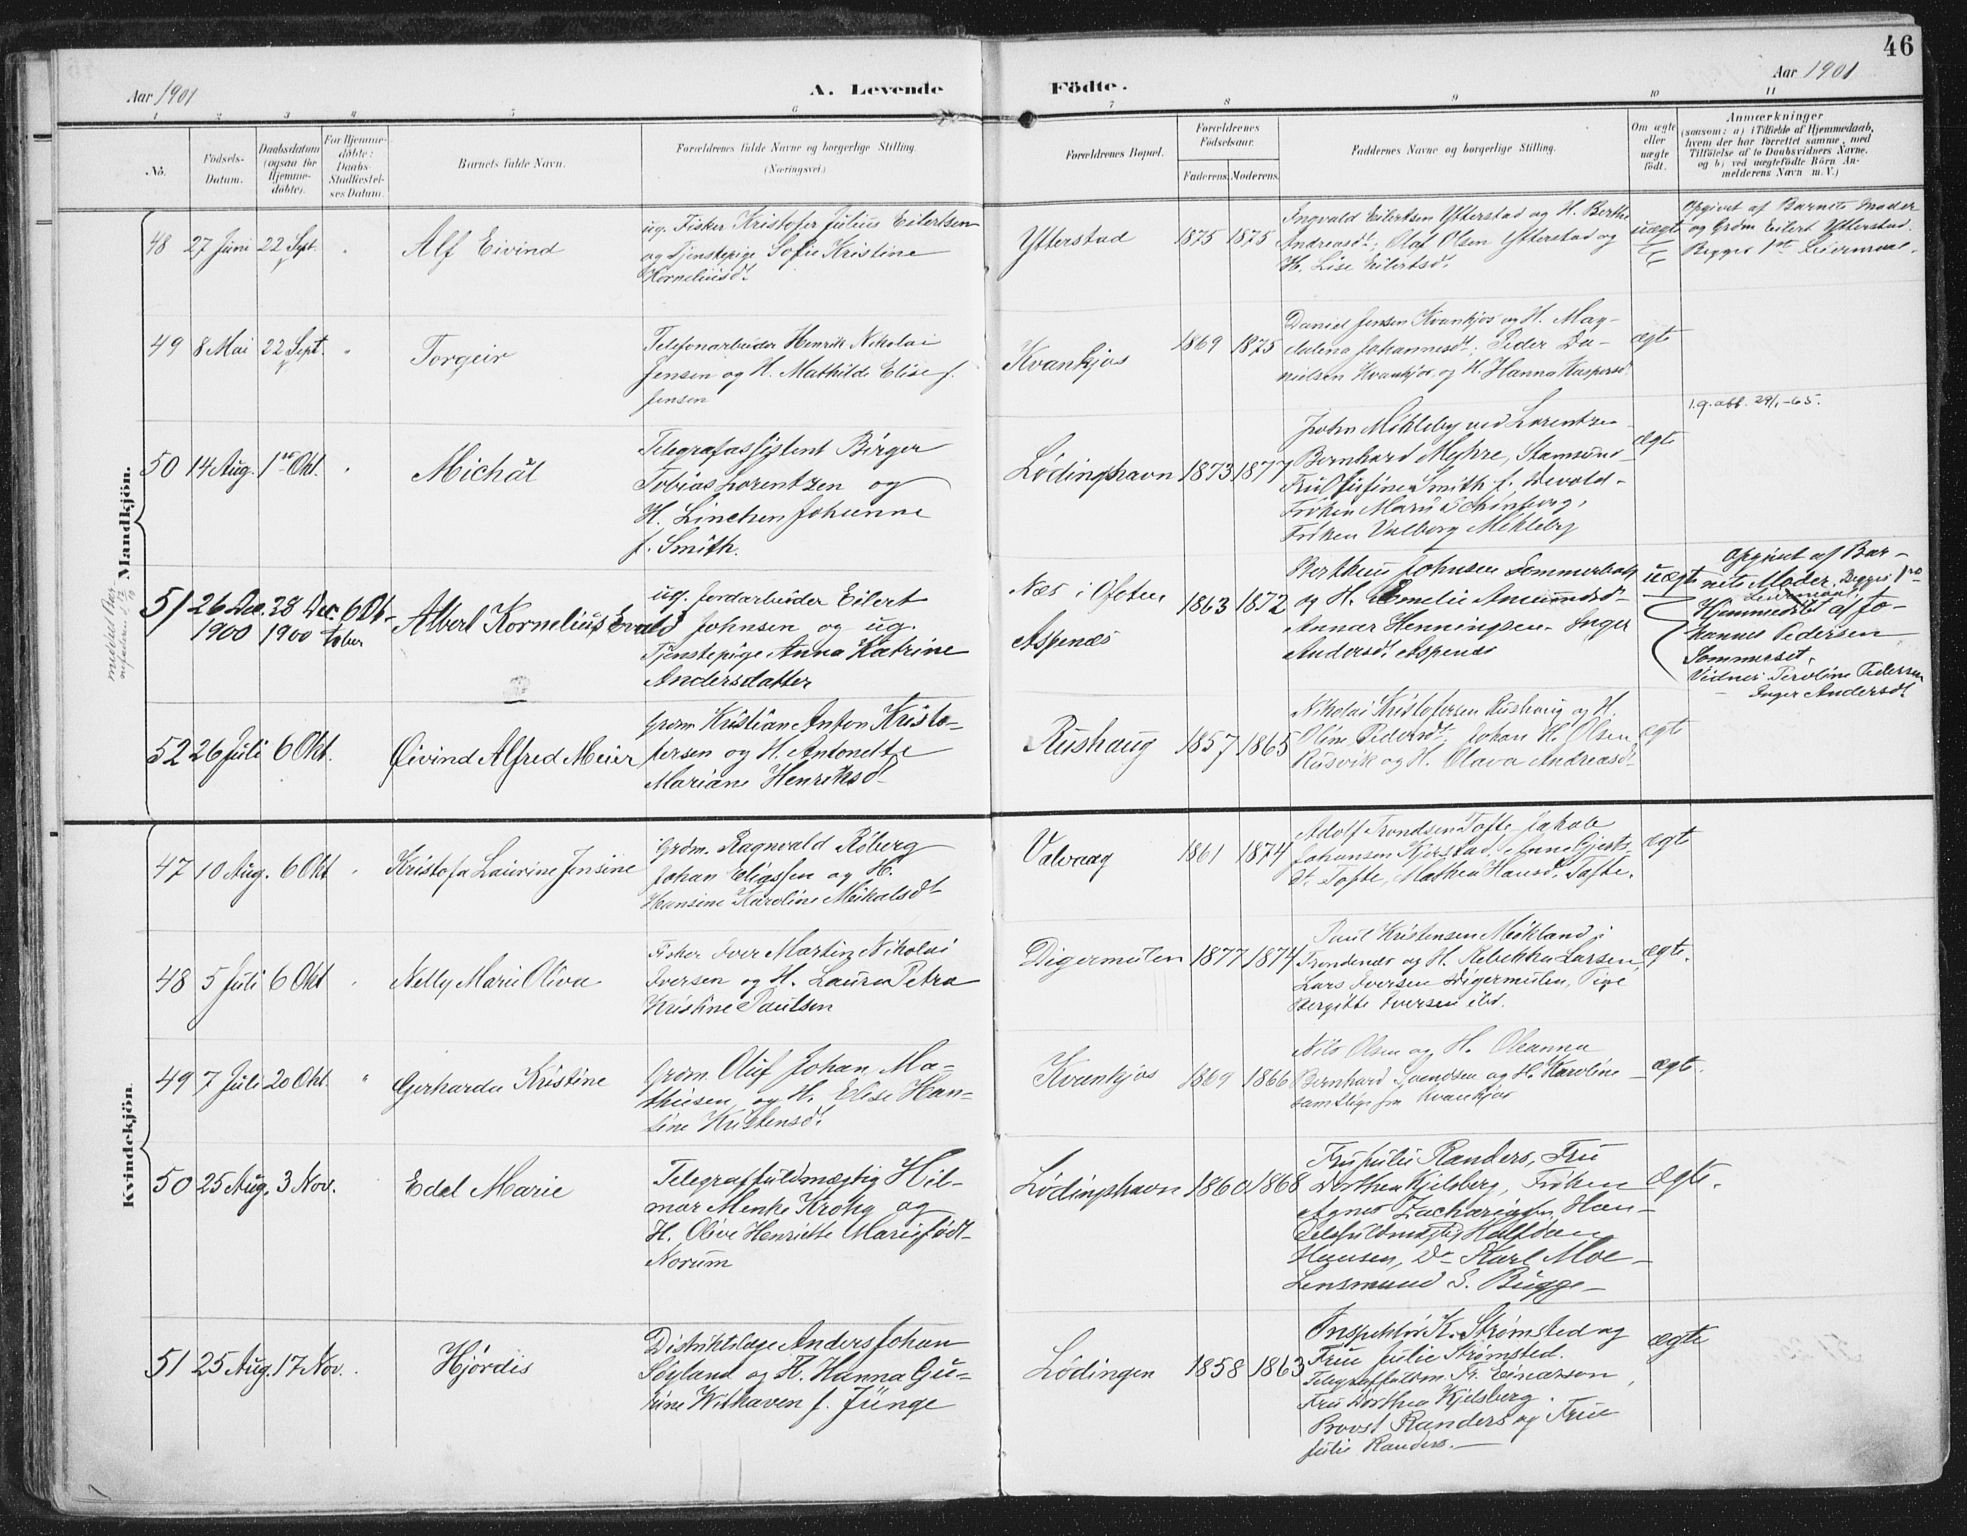 46
Aar 1901
A. Levende
Födte.
Aar 1901
1 2 3 4 5 6 7 8 9 10 11
No.
Födsels-
Datum.
Daabsdatum
(ogsaa for
Hjemme-
döbte).
For Hjemme-
döbte:
Daabs-
Stadfæstel-
ses Datum.
Barnets fulde Navn.
Forældrenes fulde Navne og borgerlige Stilling.
(Næringsvei)
Forældrenes Bopæl.
Forældrenes
Födselsaar.
Faderens. Moderens.
Faddernes Navne og borgerlige Stilling.
Om ægte
eller
uægte
födt.
Anmærkninger
(saasom: a) i Tilfælde af Hjemmedaab,
hvem der har forrettet samme, med
Tilföielse af to Daabsvidners Navne.
og b) ved uægtefödte Börn An-
melderens Navn m. V.)
Mandkjön.
48 27 Juni 22 Sept. " Alf Eivind
ug. Fisker Kristofer Julius Eilertsen
og Tjenstepige Sofie Kristine
Korneliusdt.
Ytterstad 1875 1875
Ingvald Eilertsen Ytterstad og H. Berthe
Andreasdt, Olaf Olsen Ytterstad og
H. Lise Eilertsdt.
uægte
Opgivet af Barnets Moder
og Grdm Eilert Ytterstad.
Begges 1ste Leiermaal.
49 8 Mai 22 Sept. " Torgeir
Telefonarbeider Henrik Nikolai
Jensen og H. Mathilde Elise f.
Jensen
Kvankjos 1869 1875
Daniel Jensen Kvankjos og H. Mag-
dalena Johannesdt, Peder Da-
nielsen Kvankjos og H. Hanna Kaspersd.
ægte
50 14 Aug. 1ste Okt. " Michâl
Telegrafassistent Birger
Tobias Lorentzen og
H. Linchen Johanne
f. Smith.
Lødingshavn 1873 1877
John Mikleby ved Lorentzen
Bernhard Myhre, Stamsund
Fru Josefine Smith f. Devold-
Frøken Marie Schinberg,
Frøken Valborg Mikleby
ægte
1.g. abb. 29/1-65.
51 26 Dec. 28 Dec. 6 Ok-
1900 1900 tober
Albert Kornelius Evald
ug. Jordarbeider Eilert
Johnsen og ug.
Tjenstepige Anna Katrine
Andersdatter
Næs i Ofoten
Aspenæs
1863 1872
Bertheus Johnsen Sommerbak
og H. Emelie Amundsdt.
Annar Henningsen. Inger
Andersdt. Aspenæs
uægte
Opgivet af Bar-
nets Moder. Begges 1ste
Leiermaal.
Hjemmedøbt af Jo-
hannes Pedersen
Sommerset.
Vidner Peroline Pedersen
Inger Andersdt.
52 26 Juli 6 Okt. Øivind Alfred Meier
Grdm Kristian Anton Kristo-
fersen og H. Antonette
Mariane Henriksd.
Rushaug 1857 1865
Nikolai Kristofersen Rushaug og H.
Oline Pedersdt, Johan H. Olsen
Rusvik og H. Olava Andreasdt
ægte
Kvindekjön.
47 10 Aug. 6 Okt " Kristofa Laurine Jensine
Grdm. Ragnvald Røberg
Johan Eligssen og H.
Hansine Karoline Mikalsdt
Valvaag 1861 1874
Adolf Trondsen Tofte, Jakob
Johansen Kjelstad,
Tofte, Mathea Hansd. Tofte.
ægte
48 5 Juli 6 Okt " Nelly Marie Oliva
Fisker Iver Martin Nikolai
Iversen og H. Laura Petra
Kristine Paulsen
Digermulen 1877 1874
Paul Kristensen Møkland i
Trondenæs og H. Rebekka Larsen,
Lars Iversen Digermulen, Pige
Bergitte Iversen ibd.
ægte.
49 7 Juli 20 Okt. " Gerharda Kristine
Grdm. Oluf Johan Ma-
thisen og H. Elise Han-
sine Kristensdt.
Kvankjos 1869 1866
Nils Olsen og H. Oleanna
Bernhard Svendsen og H. Karoline
samtlige fra Kvankjos
ægte.
50 25 Aug. 3 Nov. Edel Marie
Telegraffuldmægtig Hil-
mar Menke Krohg og
H. Olive Henriette Marie født
Norum
Lødingshavn 1860 1868
Fru Julie Randers, Fru
Dorthea Kjelsberg, Frøken
Agnes Zachariassen, Han-
Telefuldmægtig Halfdan
Hansen, Dr. Karl Moe-
Lensmand S. Bugge-
ægte.
51 25 Aug. 17 Nov. Hjördis
Distriktslæge Anders Johan
Søyland og H. Hanna Gu-
rine Withaven f. Jünge
Lödingen 1858 1863
Inspektør K. Strømsted og
Frue Julie Strømsted.
Telegraffuldm. Fr. Einarson,
Fru Dorthea Kjelsberg.
Provst Randers og Frue
Julie Randers.
ægte